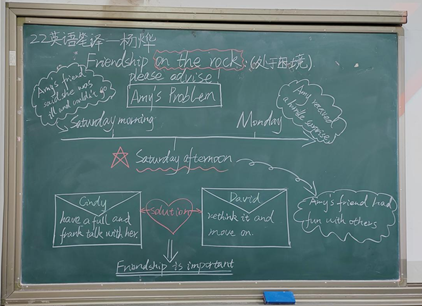 22英语笔译—杨烨
Friendship on the rock:(处于困境)
please advise
Amy's Problem
Amy's friend
said she was
ill and couldn't go
Saturday morning
Monday
Amy received
a hostile surprise
Saturday afternoon
Amy's friend had
fun with others
Cindy
have a full and
frank talk with her
solution
David
rethink it and
move on.
Friendship is important